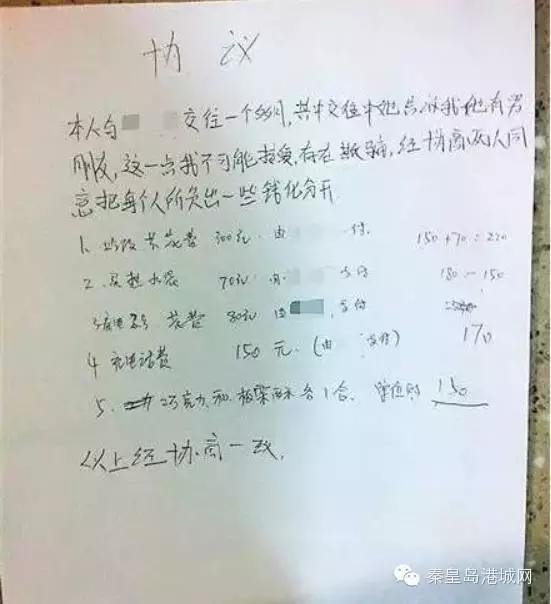 协 议
本人与 交往一个多月,其中交往中她告诉我他有男
朋友,这一点我不可能接受,存在欺骗,经协商两人同
意把每个人所负出一些钱化分开
1. 共花费 300元.由 付. 150+70=220
2. 买热水袋 70元.由 支付 180-150
3. 花费 80元 由 支付
4 充电话费 150元.(由 支付) 170
5. 巧克力和 各1合. 150
以上经协商一致.
秦皇岛港城网